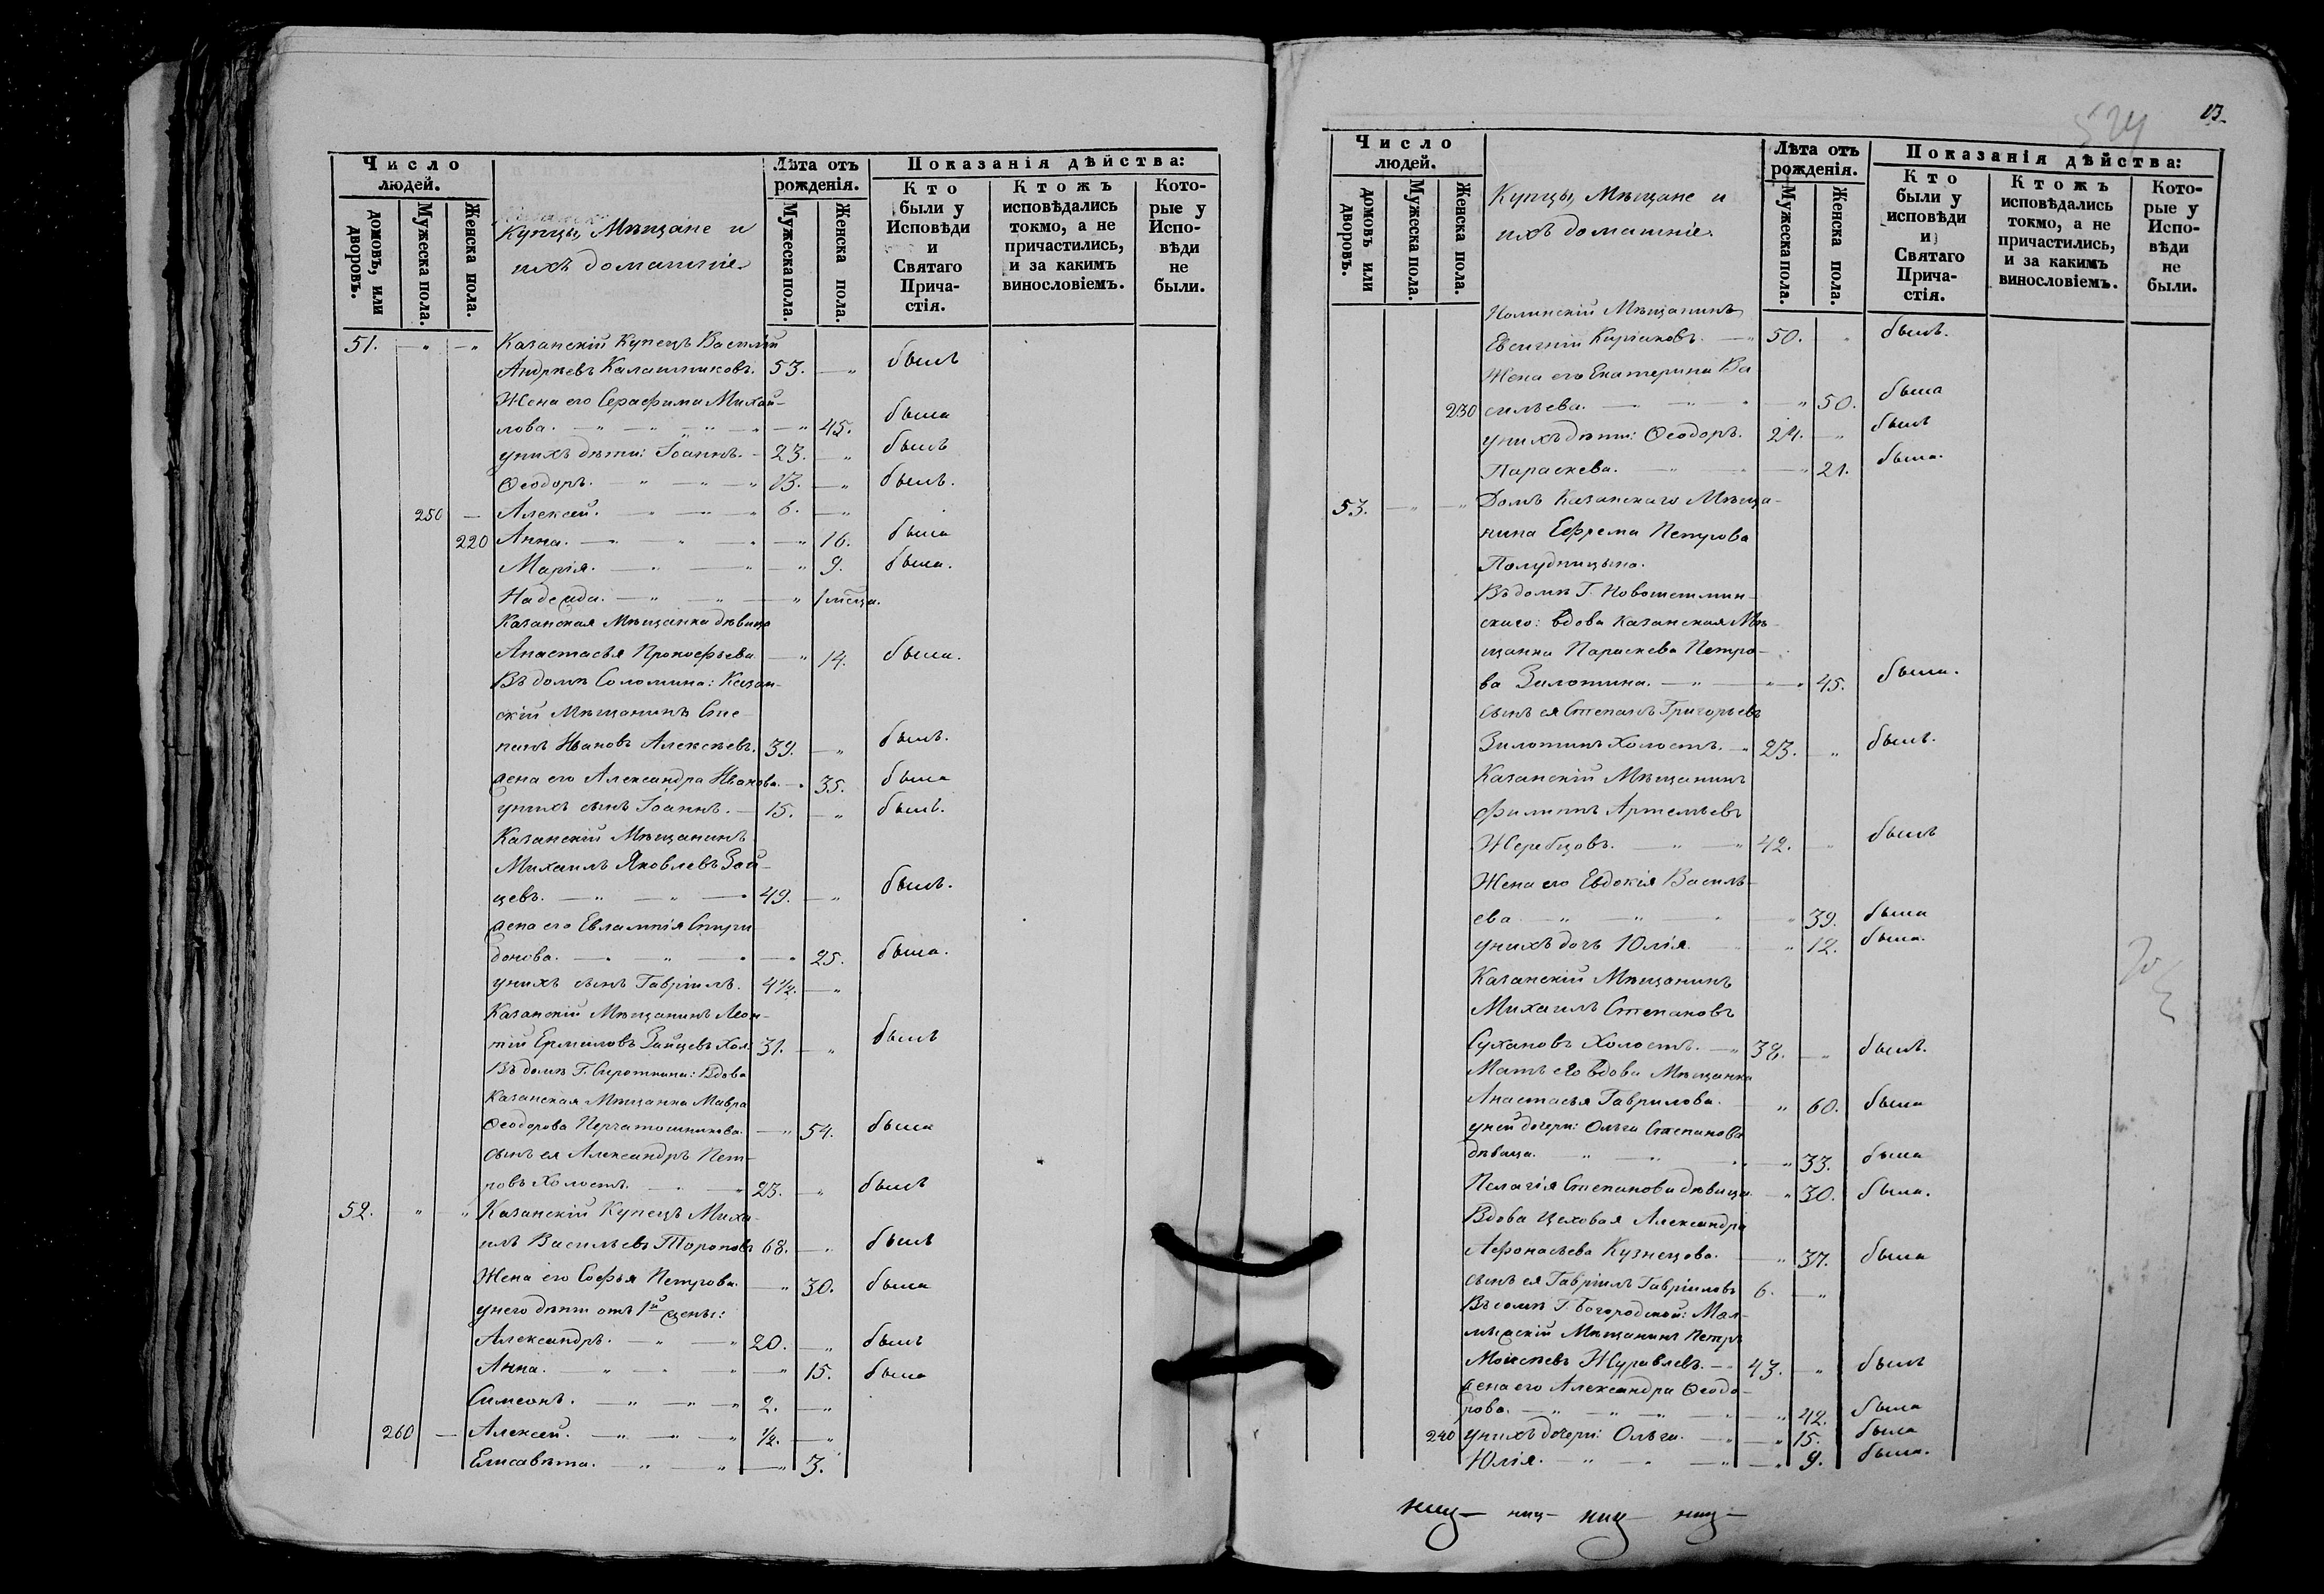 Число людей.
домовъ, или дворовъ.
Мужеска пола.
Женска пола.
Купцы, Мѣщане и
ихъ домашніе.
Лѣта отъ рожденія.
Мужеска пола.
Женска пола.
Показанія дѣйства:
Кто были у Исповѣди и Святаго Причастія.
Ктожъ исповѣдались токмо, а не причастились, и за какимъ винословіемъ.
Которые у Исповѣди не были.
51. Казанскій Купецъ Василій
Андреевъ Калашниковъ. 53. былъ
Жена его Серафима Михай-
лова. 45. была
у нихъ дѣти: Іоаннъ. 23. былъ
Ѳеодоръ. 13. былъ.
250 Алексѣй. 6.
220 Анна. 16. была
Марія. 9. была.
Надежда. 1 мѣсца.
Казанская Мѣщанка дѣвица
Анастасья Прокофьева 14. была.
Въ домѣ Соломина: Казан-
скій Мѣщанинъ Сте-
панъ Ивановъ Алексѣевъ. 39. былъ.
жена его Александра Иванова. 35. была
у нихъ сынъ Іоаннъ. 15. былъ.
Казанскій Мѣщанинъ
Михаилъ Яковлевъ Зай-
цевъ. 49. былъ.
жена его Евлампія Спири
донова. 25. была.
у нихъ сынъ Гавріилъ. 4½.
Казанскій Мѣщанинъ Леон-
тій Ермиловъ Зайцевъ хол: 31. былъ
Въ домѣ Г. Сироткина: Вдова
Казанская Мѣщанка Мавра
Ѳеодорова Перчатошникова. 54. была
сынъ ея Александръ Пет-
ровъ холостъ. 23. былъ
52. Казанскій Купецъ Миха-
илъ Васильевъ Тороповъ 68. былъ
Жена его Софья Петрова. 30. была
у него дѣти отъ 1й жены:
Александръ. 20. былъ
Анна. 15. была
Симеонъ. 2.
260 Алексѣй. ½.
Елисавѣта. 3.
524
13.
Число людей.
домовъ или дворовъ.
Мужеска пола.
Женска пола.
Купцы, Мѣщане и
ихъ домашніе.
Лѣта отъ рожденія.
Мужеска пола.
Женска пола.
Показанія дѣйства:
Кто были у исповѣди и Святаго Причастія.
Ктожъ исповѣдались токмо, а не причастились, и за какимъ винословіемъ.
Которые у Исповѣди не были.
Нолинскій Мѣщанинъ
Евсигній Киріаковъ. 50. былъ.
Жена его Екатерина Ва
230 сильева. 50. была
у нихъ дѣти: Ѳеодоръ. 24. былъ
Параскева. 21. была.
53. Домъ Казанскаго Мѣща-
нина Ефрема Петрова
Полудницына.
Въ домѣ Г. Новошешмин-
скаго: вдова Казанская Мѣ-
щанка Параскева Петро-
ва Залотина. 45. была.
сынъ ея Степанъ Григорьевъ
Залотинъ холостъ. 23. былъ.
Казанскій Мѣщанинъ
Филиппъ Артемьевъ
Жеребцовъ. 42. былъ
Жена его Евдокія Василь-
ева 39. была
у нихъ дочь Юлія. 12. была.
Казанскій Мѣщанинъ
Михаилъ Степановъ
Сухановъ холостъ. 38. былъ.
Мать его вдова Мѣщанка
Анастасья Гаврилова. 60. была
у ней дочери: Ольга Степанова
дѣвица. 33. была
Пелагія Степанова дѣвица. 30. была.
Вдова Цеховая Александра
Афонасьева Кузнецова. 37. была
сынъ ея Гавріилъ Гавріиловъ 6.
Въ домѣ Г. Богородской: Мал-
мыжскій Мѣщанинъ Петръ
Моисеевъ Журавлевъ. 43. былъ
жена его Александра Ѳеодо-
рова. 42. была
240 у нихъ дочери: Ольга. 15. была
Юлія. 9. была.